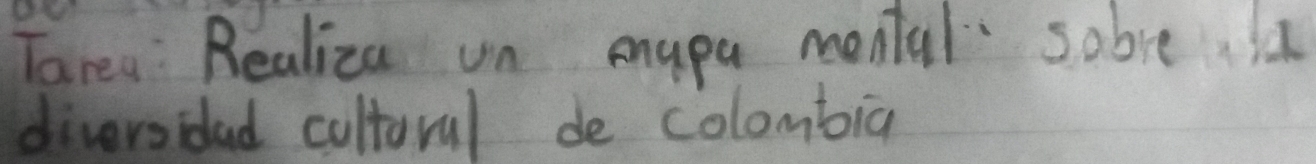 Tarea: Realiza un mapa mental sobre la
diversidad cultural de colombia